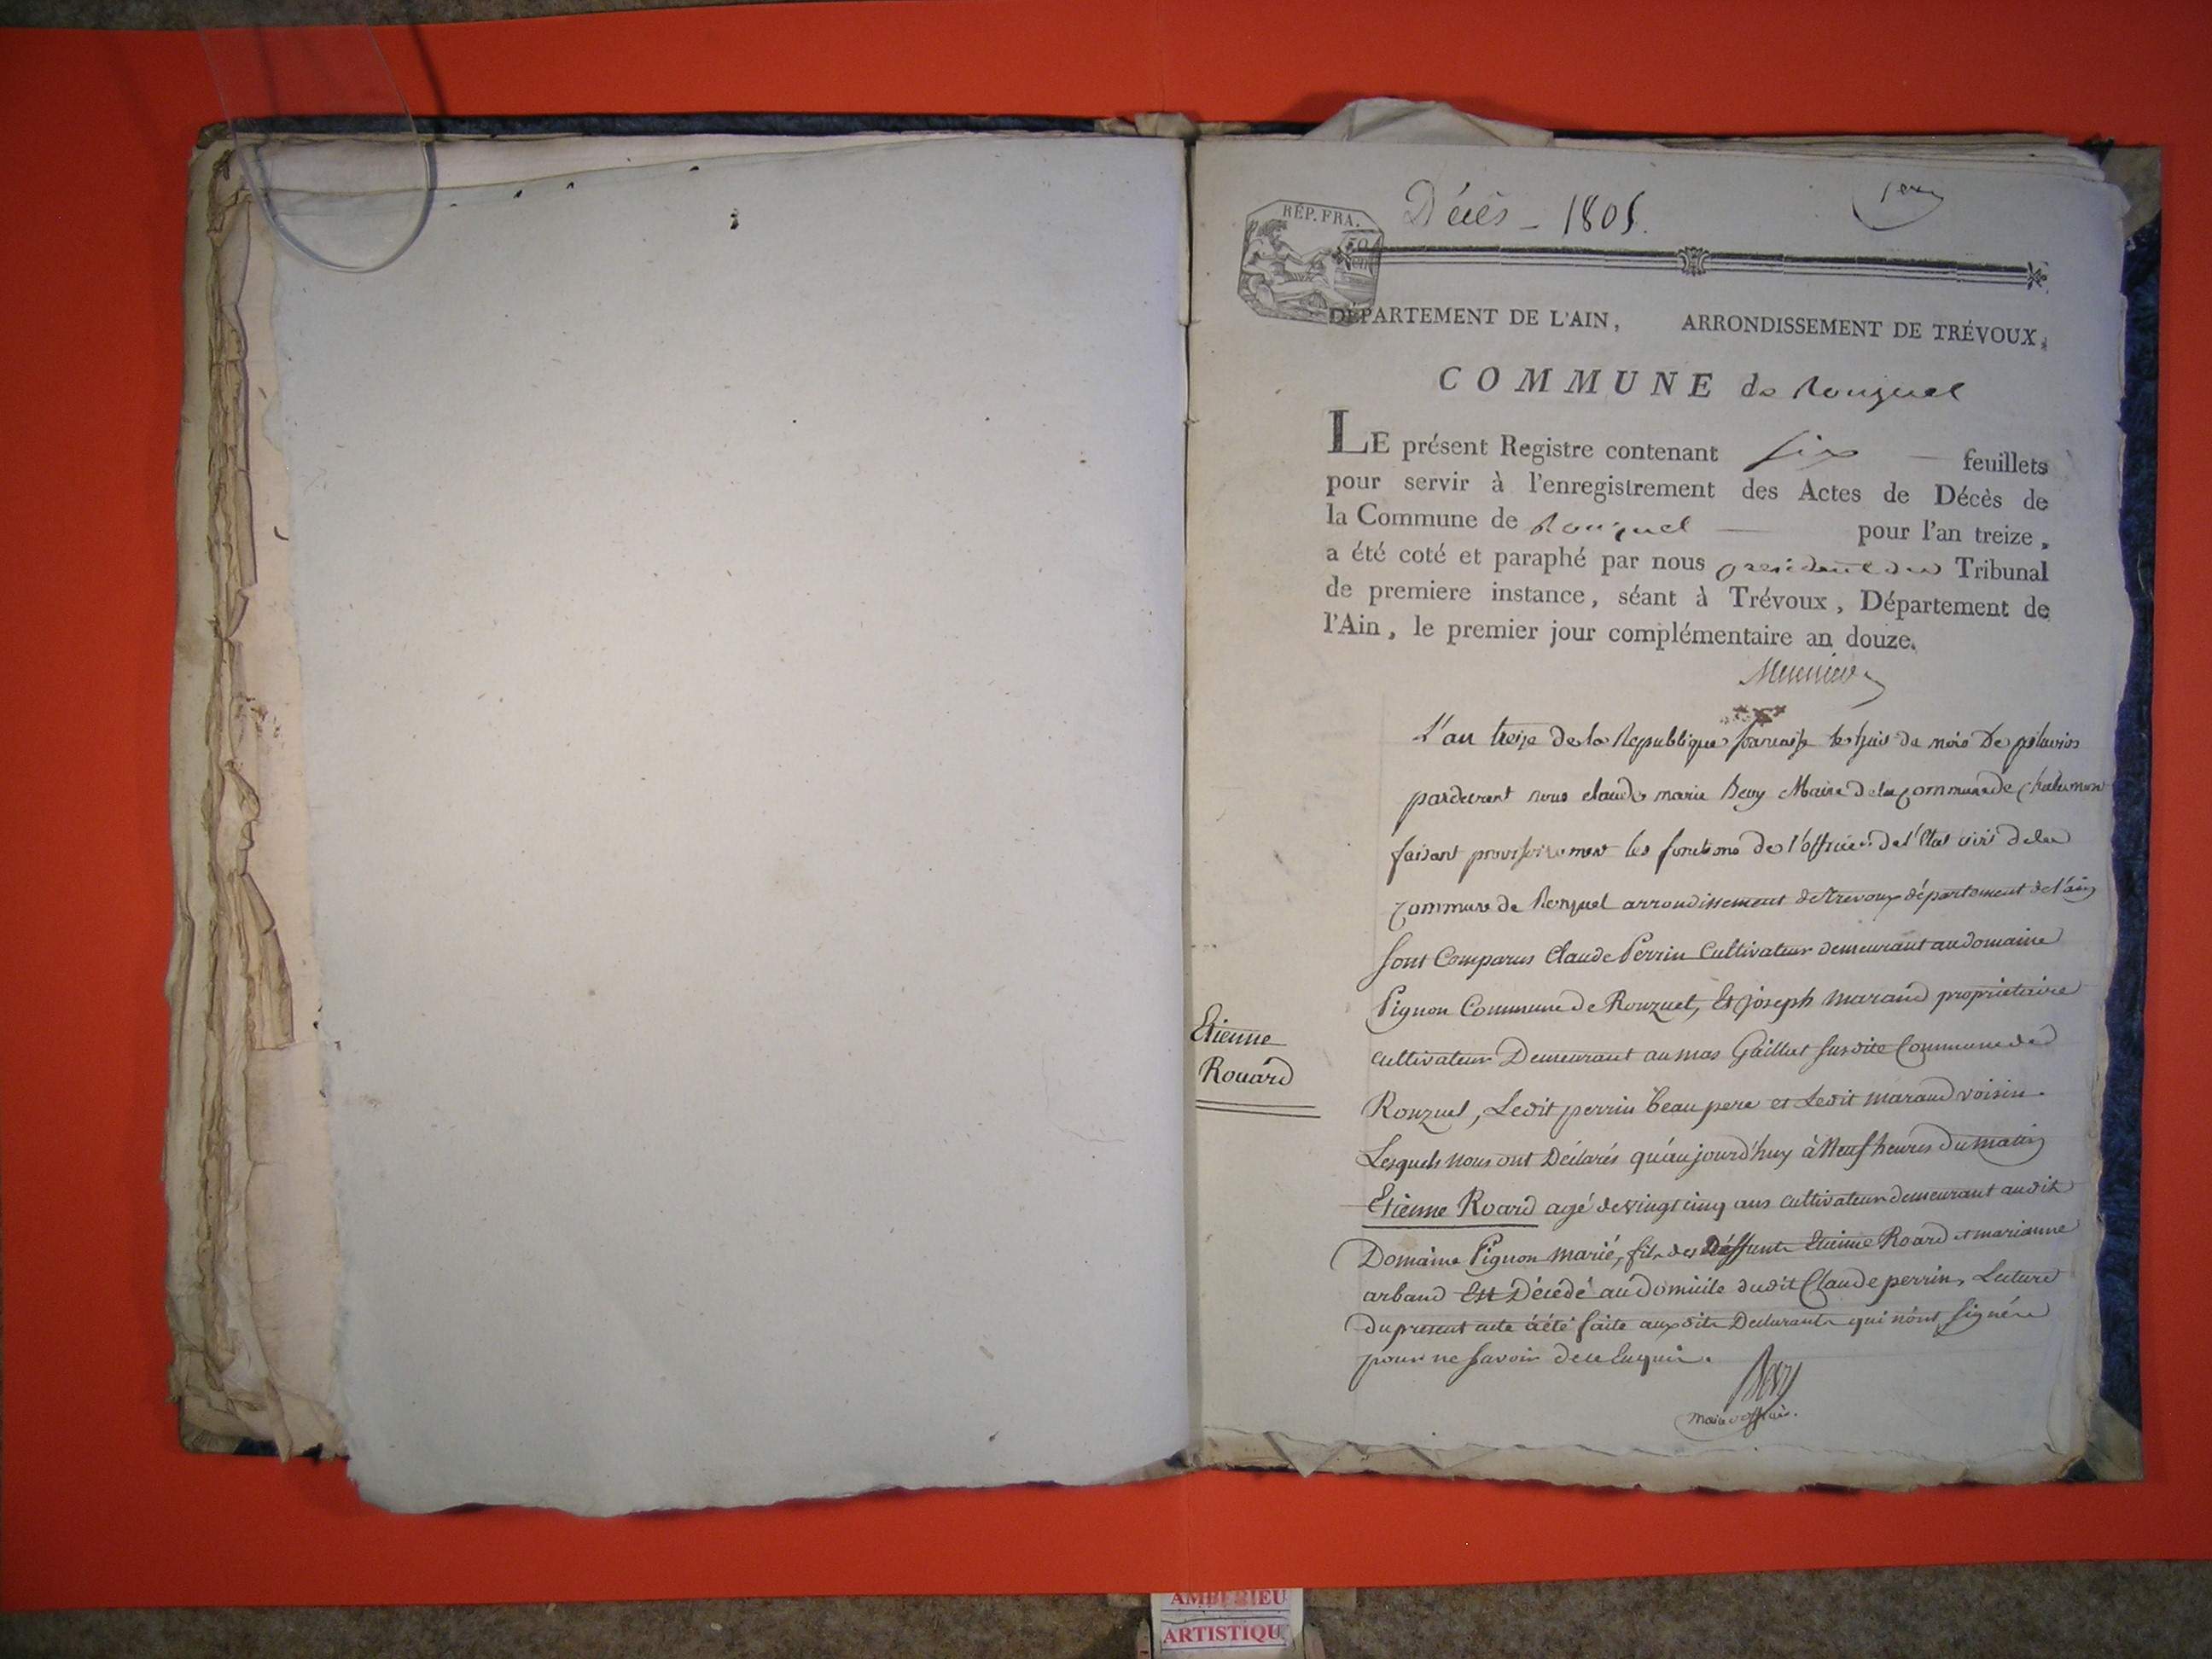 Décès - 1805.
1er
RÉP. FRA.
DÉPARTEMENT DE L'AIN, ARRONDISSEMENT DE TRÉVOUX,
COMMUNE de Ronzuel
LE présent Registre contenant six feuillets
pour servir à l'enregistrement des Actes de Décès de
la Commune de Ronzuel pour l'an treize,
a été coté et paraphé par nous president du Tribunal
de premiere instance, séant à Trévoux, Département de
l'Ain, le premier jour complémentaire an douze.
L'an treize de la Republique francaise le huit du mois de pluvios
pardevant nous claude marie Maire de la commune de chalamon
faisant provisoirement les fonctions de l'officier de l'Etat civil de la
commune de Ronzuel arrondissement de trevoux département de l'ain
sont Comparus Claude Perrin Cultivateur demeurant au domaine
Pignon Commune de Ronzuel, Et joseph maraud proprietaire
Cultivateur Demeurant au mas Gaillat susdite Commune de
Ronzuel, Ledit perrin beau pere et Ledit maraud voisin.
Lesquels nous ont Déclarés qu'aujourd'huy à Neuf heures du matin
Etienne
Rouard
Etienne Roard agé de vingt cinq ans cultivateur demeurant audit
Domaine Pignon marié, fils des Deffunts Etienne Roard et marianne
arband Est Décédé au Domicile dudit Claude perrin, Lecture
du present acte à été faite auxdits Declarants qui n'ont signés
pour ne savoir de ce Enquis.
AMBERIEU
ARTISTIQU